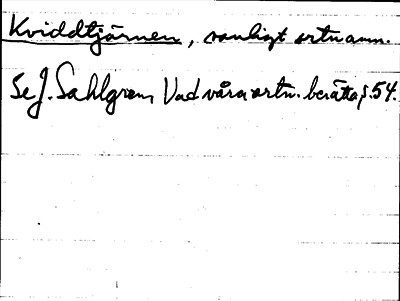 Kviddtjärnen, vanligt ortnamn.
Se J. Sahlgren, Vad våra ortn. berätta, s. 54.